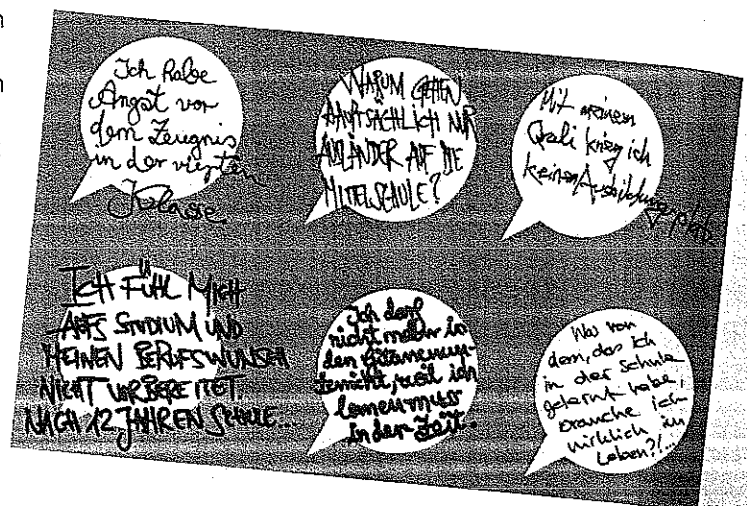 Ich habe
Angst vor
dem Zeugnis
in der vierten
Klasse
WARUM GEHEN
HAUPTSÄCHLICH NUR
AUSLÄNDER AUF DIE
MITTELSCHULE?
Mit meinem
Quali krieg ich
keinen Ausbildungsplatz
ICH FÜHL MICH
AUFS STUDIUM UND
MEINEN BERUFSWUNSCH
NICHT VORBEREITET.
NACH 12 JAHREN SCHULE...
Ich darf
nicht mehr in
den Gitarrenun-
terricht, weil ich
lernen muss
in der Zeit.
Was von
dem, das ich
in der Schule
gelernt habe,
brauche ich
wirklich im
Leben?!...